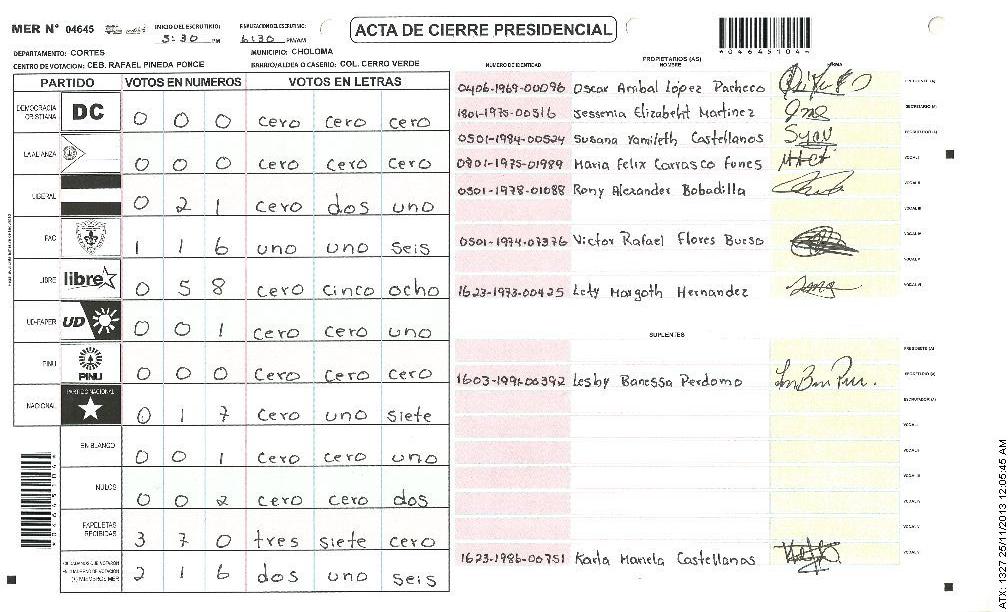 MER Nº 04645 INICIO DEL ESCRUTINIO: 5:30 PM FINALIZACION ESCRUTINIO: 6:30 PM/AM
ACTA DE CIERRE PRESIDENCIAL
04645104
DEPARTAMENTO: CORTES MUNICIPIO: CHOLOMA
CENTRO DE VOTACION: CEB. RAFAEL PINEDA PONCE BARRIO/ALDEA O CASERIO: COL. CERRO VERDE
PARTIDO VOTOS EN NUMEROS VOTOS EN LETRAS
DEMOCRACIA CRISTIANA DC 0 0 0 cero cero cero
LA ALIANZA 0 0 0 cero cero cero
LIBERAL 0 2 1 cero dos uno
PAC 1 1 6 uno uno seis
LIBRE libre 0 5 8 cero cinco ocho
UD-FAPER UD 0 0 1 cero cero uno
PINU PINU 0 0 0 cero cero cero
NACIONAL PARTIDO NACIONAL 0 1 7 cero uno siete
EN BLANCO 0 0 1 cero cero uno
NULOS 0 0 2 cero cero dos
PAPELETAS RECIBIDAS 3 7 0 tres siete cero
2 1 6 dos uno seis
PROPIETARIOS (AS)
NUMERO DE IDENTIDAD NOMBRE FIRMA
0406-1969-00096 Oscar Anibal López Pacheco PRESIDENTE (A)
1801-1975-00516 Jessenia Elizabeht Martinez SECRETARIO (A)
0501-1984-00524 Susana Yamileth Castellanos ESCRUTADOR (A)
0801-1975-01989 Maria Felix Carrasco Funes VOCAL I
0501-1978-01088 Rony Alexander Bobadilla VOCAL II
VOCAL III
0501-1974-07376 Victor Rafael Flores Bueso VOCAL IV
VOCAL V
1623-1973-00425 Lety Margoth Hernandez VOCAL VI
SUPLENTES
PRESIDENTE (A)
Lesby Banessa Perdomo SECRETARIO (A)
ESCRUTADOR (A)
VOCAL I
VOCAL II
VOCAL III
VOCAL IV
VOCAL V
1623-1986-00751 Karla Mariela Castellanos
ATX: 1327 25/11/2013 12:05:45 AM